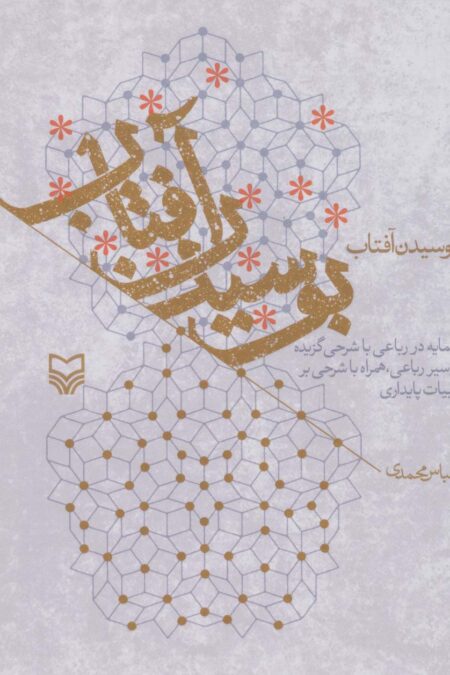 بوسیدن آفتاب
وسیدن آفتاب
مایه در رباعی با شرحی گزیده
سیر رباعی، همراه با شرحی بر
بیات پایداری
باس محمدی